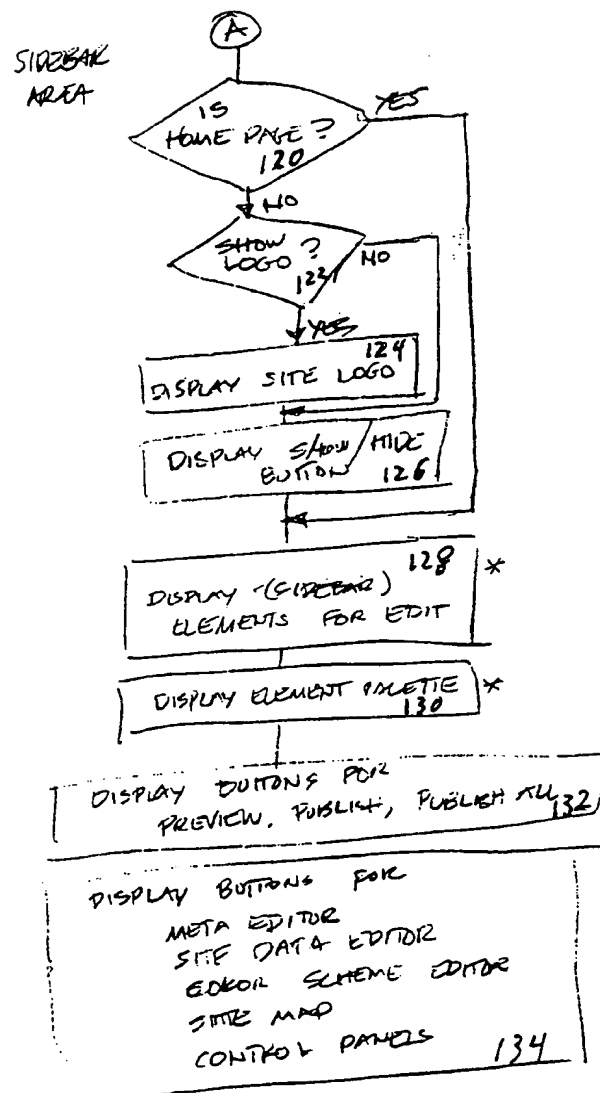 A
SIDEBAR
AREA
YES
IS
HOME PAGE?
120
NO
SHOW
LOGO?
122
NO
YES
124
DISPLAY SITE LOGO
DISPLAY SHOW/HIDE
BUTTON 126
128 *
DISPLAY (SIDEBAR)
ELEMENTS FOR EDIT
DISPLAY ELEMENT PALETTE *
130
DISPLAY BUTTONS FOR
PREVIEW, PUBLISH, PUBLISH ALL 132
DISPLAY BUTTONS FOR
META EDITOR
SITE DATA EDITOR
COLOR SCHEME EDITOR
SITE MAP
CONTROL PANELS 134